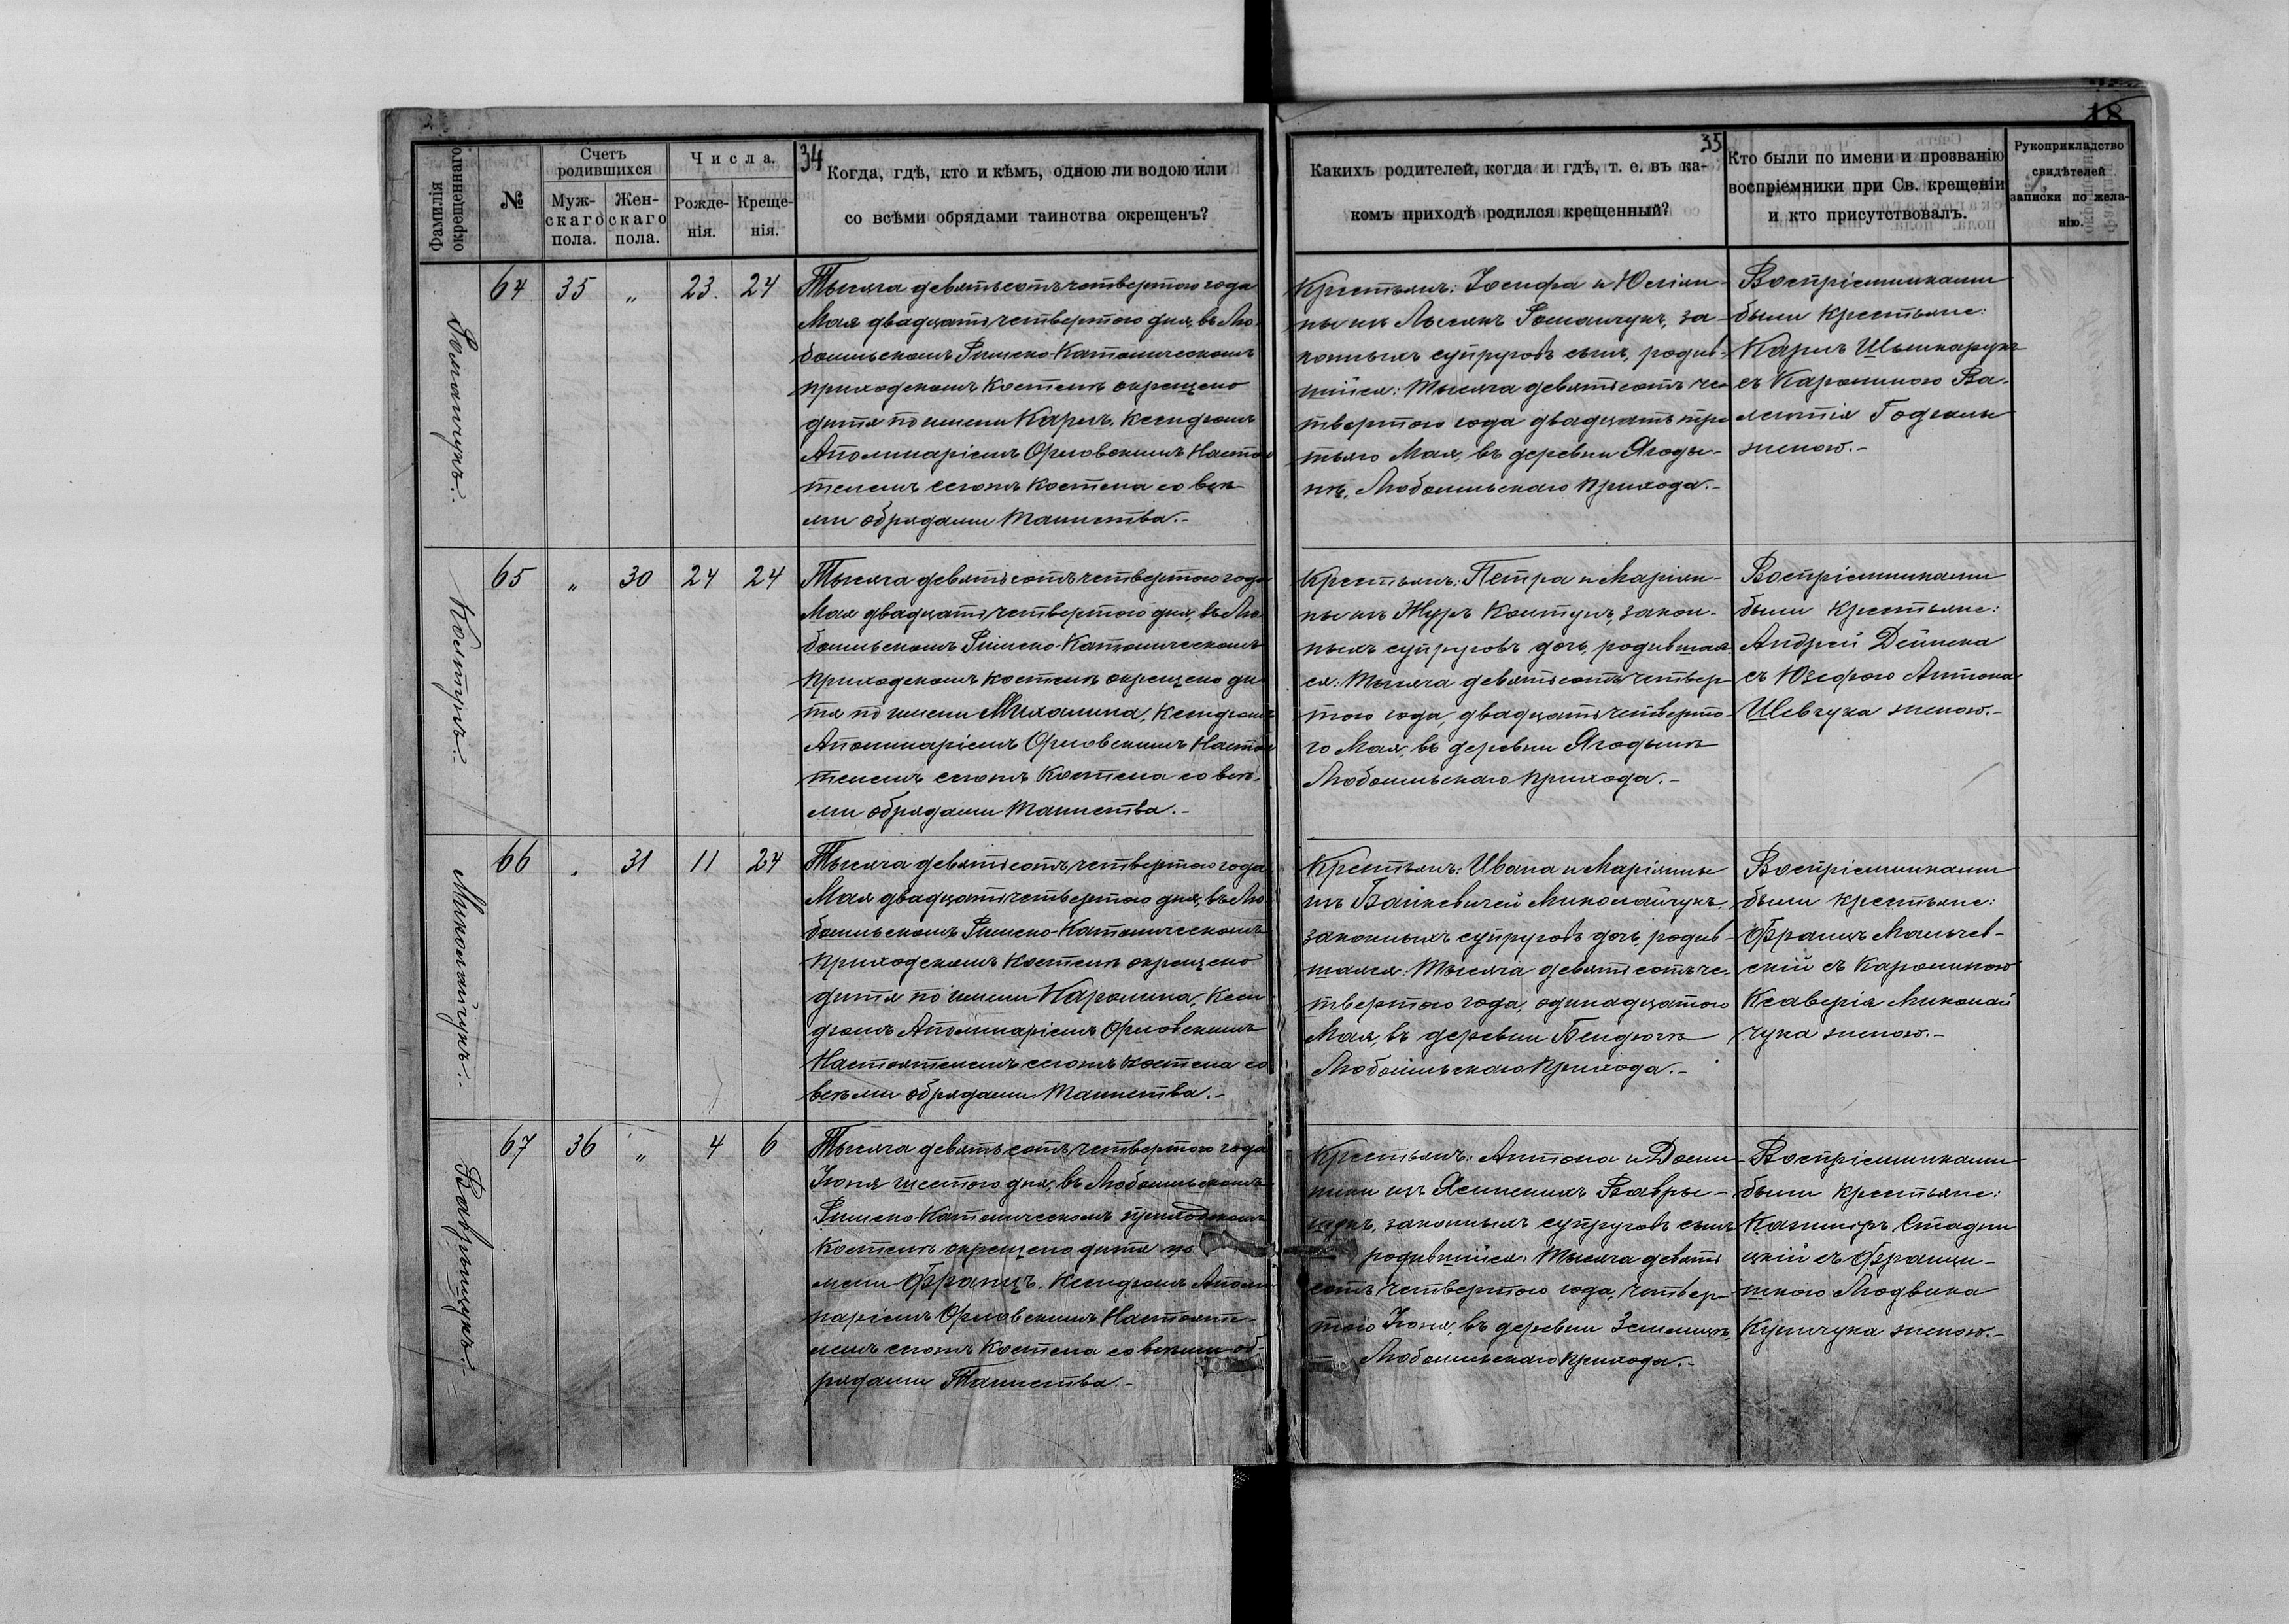 18
34
35
Фамилія
окрещеннаго
№
Счетъ
родившихся
Муж-
скаго
пола.
Жен-
скаго
пола.
Числа.
Рожде-
нія.
Креще-
нія.
Когда, гдѣ, кто и кѣмъ, одною ли водою или
со всѣми обрядами таинства окрещенъ?
Какихъ родителей, когда и гдѣ, т. е. въ ка-
комъ приходѣ родился крещенный?
Кто были по имени и прозванію
воспріемники при Св. крещеніи
и кто присутствовалъ.
Рукоприкладство
свидѣтелей
записки по жела-
нію.
Романчукъ.
64 35 „ 23. 24
Тысяча девятьсотъ четвертого года
Мая двадцать четвертого дня, въ Лю-
бомльскомъ Римско-Католическомъ
приходскомъ костелѣ окрещено
дитя по имени Карлъ, Ксендзомъ
Аполинаріемъ Орловскимъ Настоя
телемъ сегожъ Костела со всѣ-
ми обрядами Таинства.-
Крестьянъ: Іосифа и Юліян-
ны изъ Лысякъ Романчукъ, за-
конныхъ супруговъ сынъ, родив-
шійся: Тысяча девятьсотъ че-
твертого года двадцать тре
тьяго Мая, въ деревни Ягоды-
нѣ, Любомльскаго прихода.-
Воспріемниками
были крестьяне:
Карлъ Шышкарукъ
съ Каролиною Ва-
лентія Годзелы
женою.-
Колтунъ.
65 „ 30 24 24
Тысяча девятьсотъ четвертого года
Мая двадцать четвертого дня, въ Лю-
бомльскомъ Римско-Католическомъ
приходскомъ костелѣ окрещено ди
тя по имени Михалина, Ксендзомъ
Аполинаріемъ Орловскимъ Настоя
телемъ сегожъ Костела со всѣ-
ми обрядами Таинства.-
Крестьянъ: Петра и Маріян-
ны изъ Журъ Колтунъ, закон-
ныхъ супруговъ дочь, родившая
ся: Тысяча девятьсотъ четвер
того года, двадцать четверто-
го Мая, въ деревни Ягодынѣ
Любомльскаго прихода.-
Воспріемниками
были крестьяне:
Андрей Дейнека
съ Юзефою Антона
Шевчука женою.-
Миколайчукъ.
66 . 31 11 24
Тысяча девятьсотъ четвертого года
Мая двадцать четвертого дня, въ Лю
бомльскомъ Римско-Католическомъ
приходскомъ костелѣ окрещено
дитя по имени Каролина, Ксен
дзомъ Аполинаріемъ Орловскимъ
Настоятелемъ сегожъ костела со
всѣми обрядами Таинства.-
Крестьянъ: Ивана и Маріянны
изъ Байкевичей Миколайчукъ,
законныхъ супруговъ дочь, родив-
шаяся: Тысяча девятьсотъ че-
твертого года, одинадцатого
Мая, въ деревни Бендюгѣ
Любомльскаго прихода.-
Воспріемниками
были крестьяне:
Францъ Мальчев-
скій съ Каролиною
Ксаверія Миколай
чука женою.-
67 36 „ 4 6
Тысяча девятьсотъ четвертого года
Іюня шестого дня, въ Любомльскомъ
Римско-Католическомъ приходскомъ
костелѣ окрещено дитя по
мени Францъ, Ксендзомъ Аполи
наріемъ Орловскимъ Настояте-
лемъ сегожъ Костела со всѣми об-
рядами Таинства.-
Крестьянъ: Антона и Доми
ники изъ Ясинскихъ Вавры-
законныхъ супруговъ сынъ
родившійся: Тысяча девять
сотъ четвертого года, четвер-
того Іюня, въ деревни Землицѣ,
Любомльскаго прихода.-
Воспріемниками
были крестьяне:
Казиміръ Стадни
цкій съ Францы-
шкою Людвика
женою.-